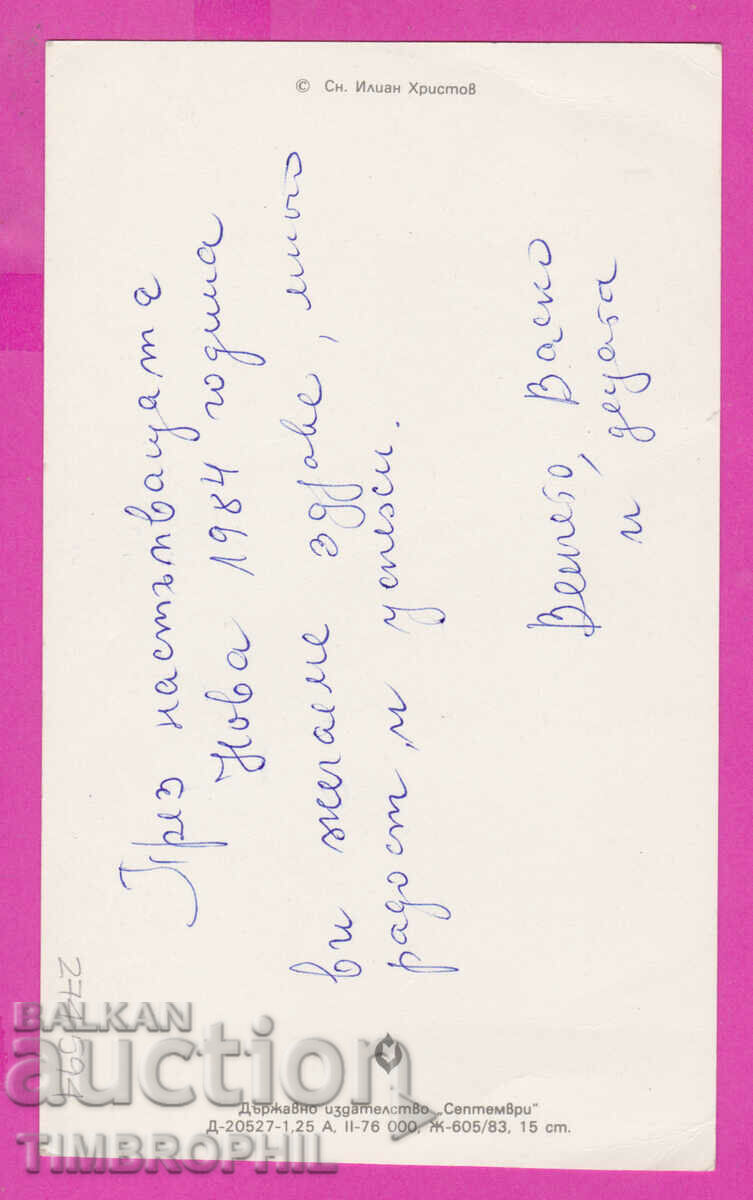 © Сн. Илиан Христов
През настъпващата
Нова 1984 година
ви желаем здраве, много
радост и успехи.
Васко
и децата
277594
Държавно издателство „Септември“
Д-20527-1,25 А, II-76 000, Ж-605/83, 15 ст.
BALKAN
auction
TIMBROPHIL